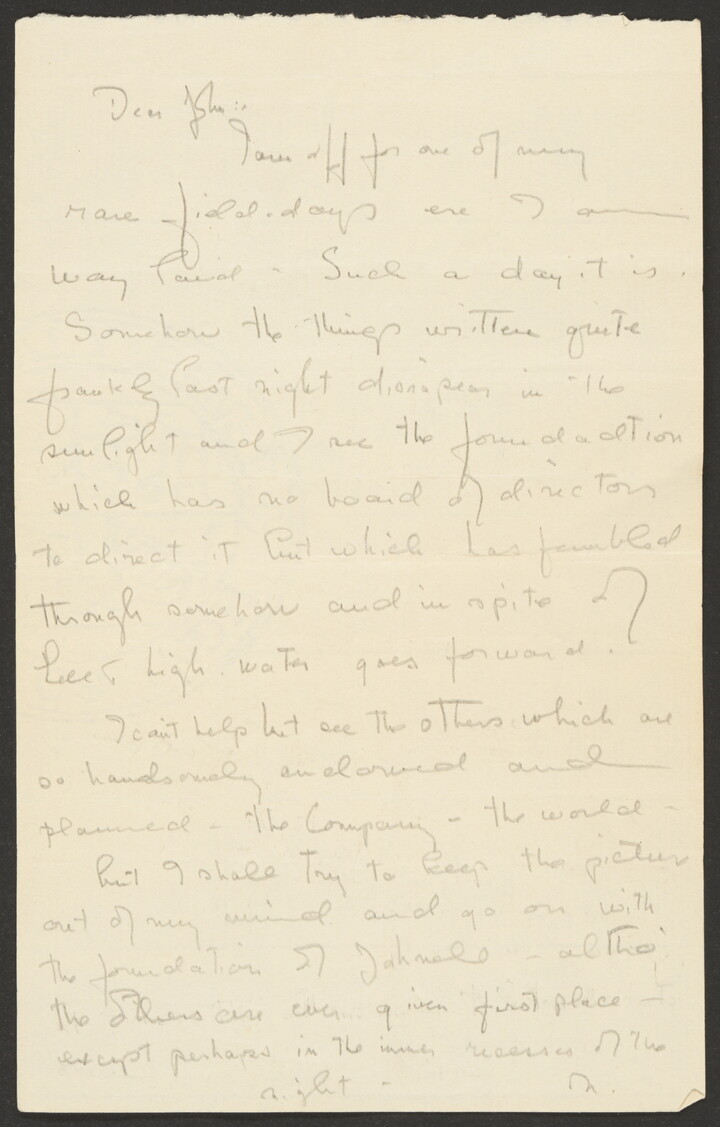 Dear John:
I am off for one of my
rare field-days ere I am
way laid - Such a day it is.
Somehow the things written quite
frankly last night disapear in the
sunlight and I see the foundadtion
which has no board of directors
to direct it but which has fumbled
through somehow and in spite of
high water goes forward.
I can't help but see the others which are
so handsomely endowed and
planned - The Company - the world -
but I shall try to keep the picture
out of my mind and go on with
the foundation of - altho'
the others are ever given first place -
except perhaps in the inner recesses of the
night -